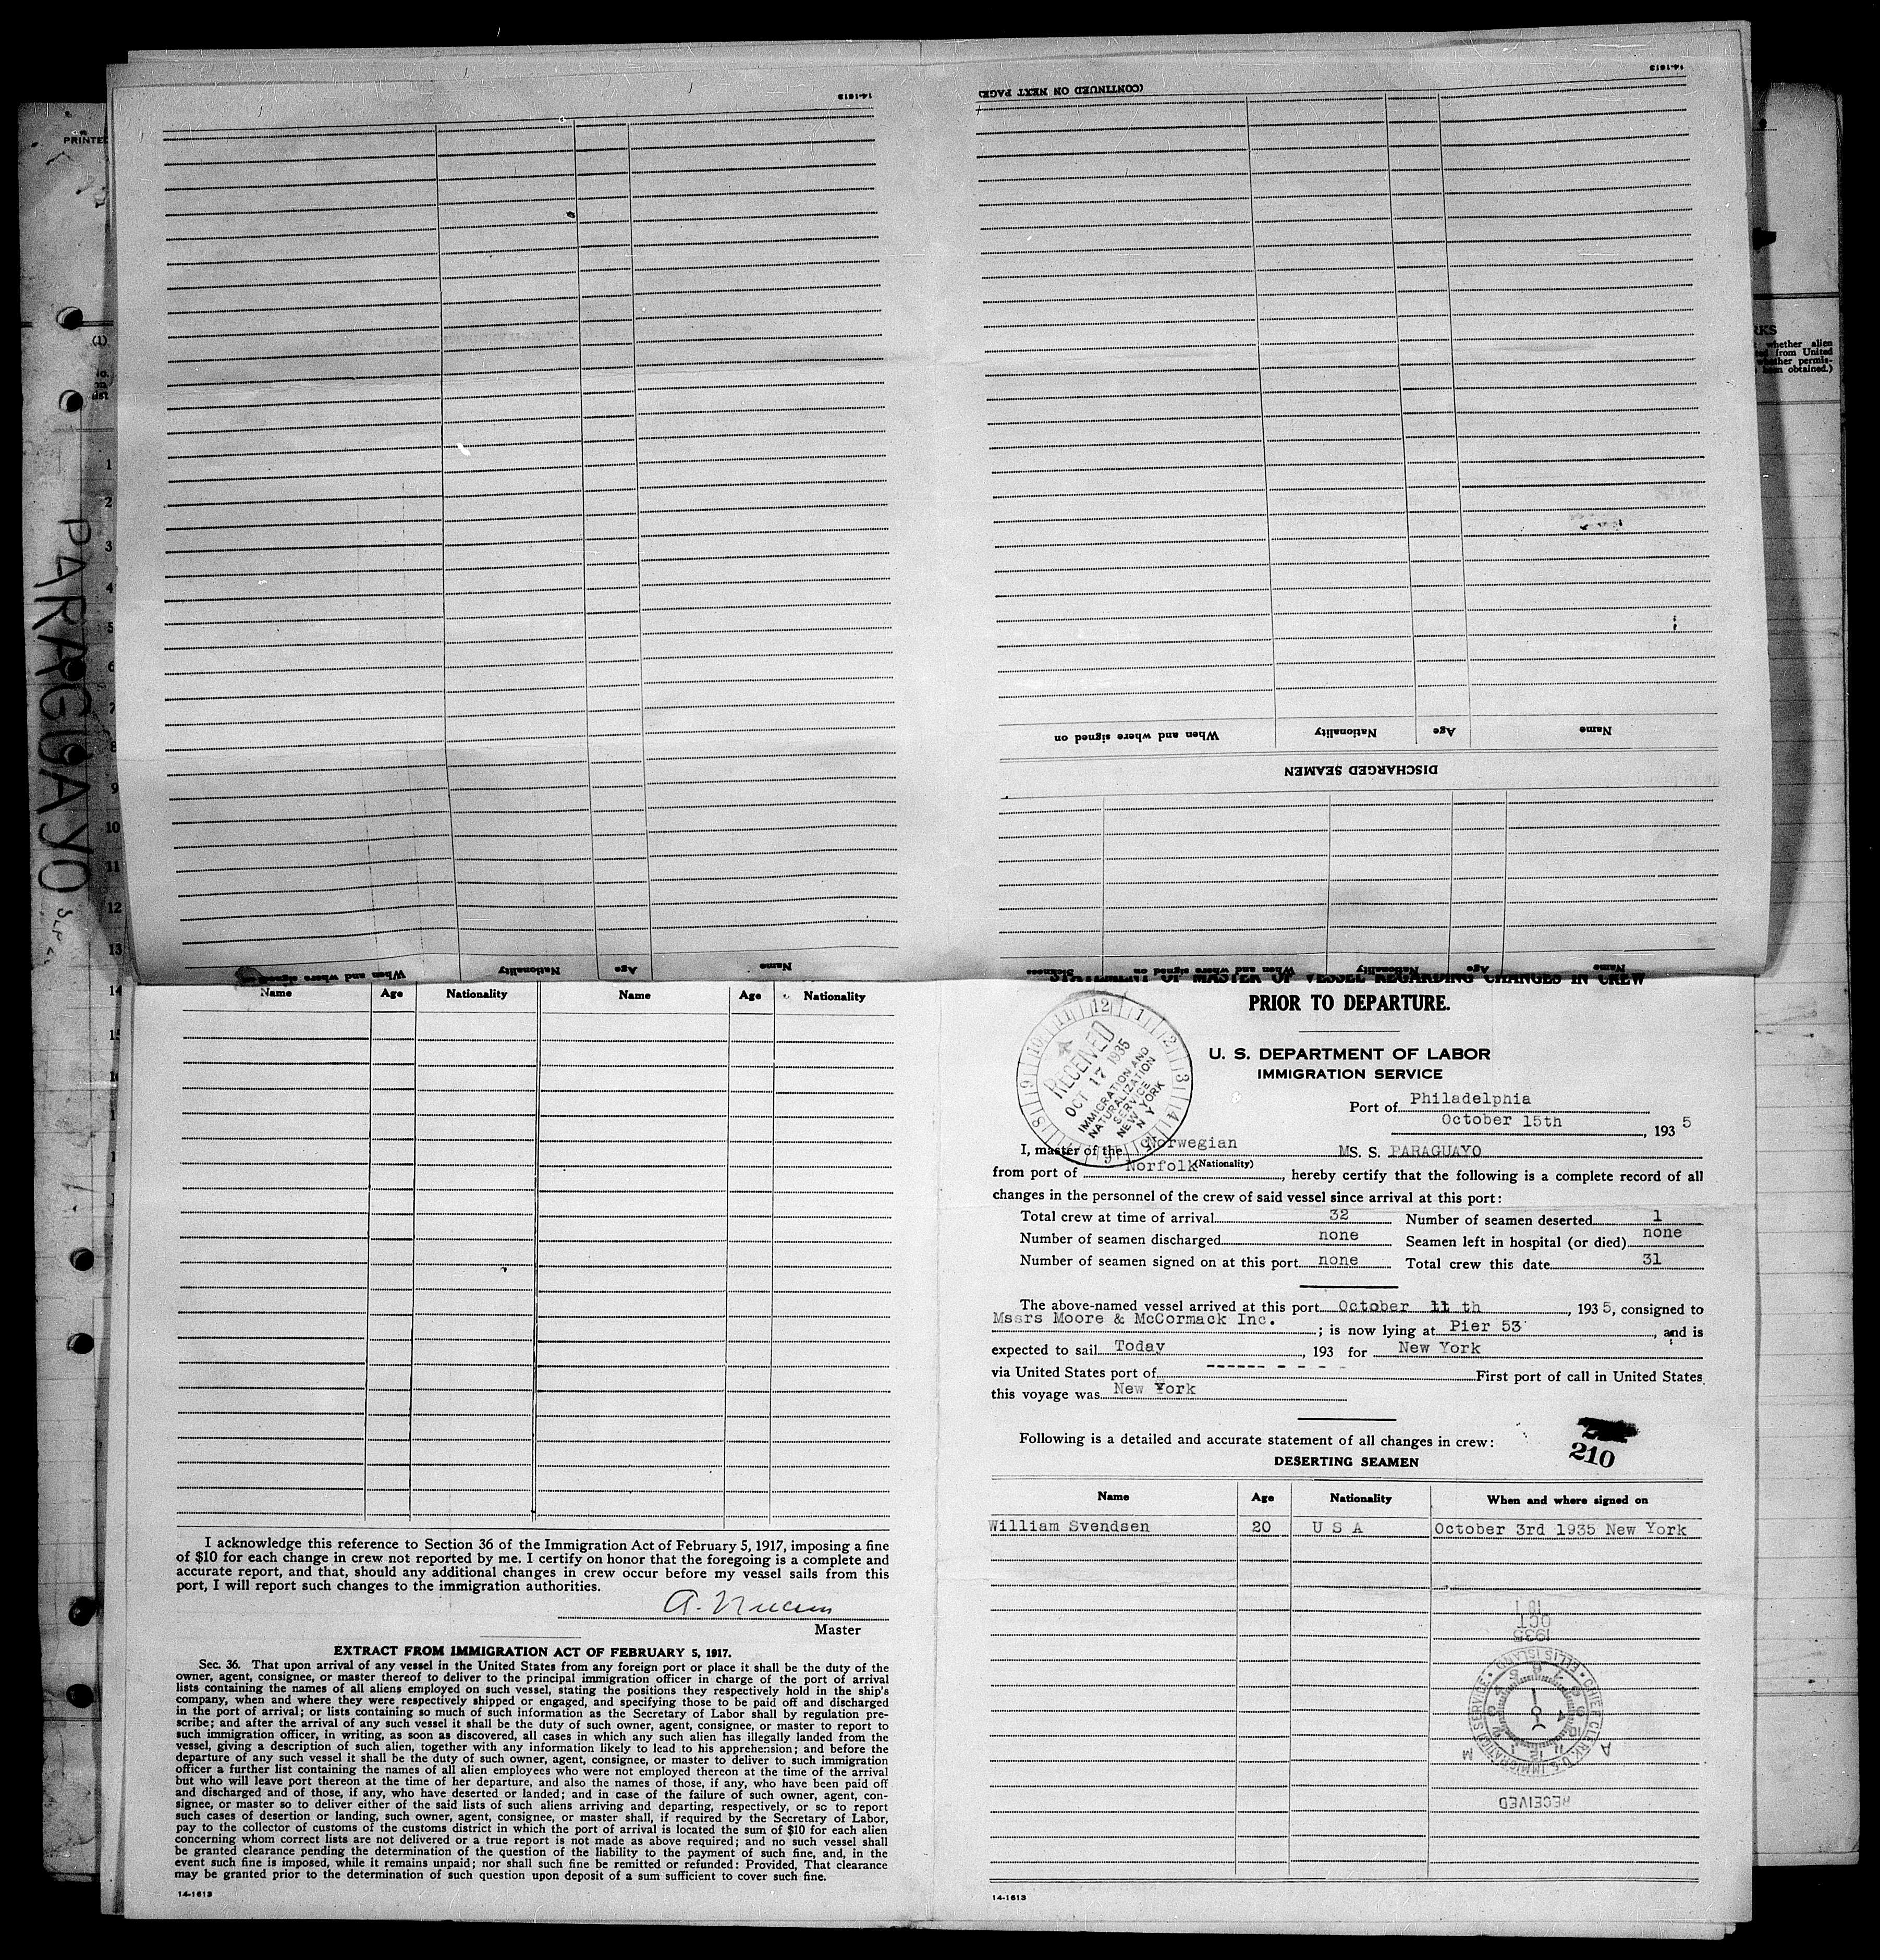 14-1613
14-1613
(CONTINUED ON NEXT PAGE)
PRINTED
(1)
1
2
3
4
5
6
7
8
9
10
11
12
13
14
PARAGUAYO
RKS
whether alien
from United
whether permis-
been obtained.)
When and where signed on Nationality Age Name
DISCHARGED SEAMEN
When and where signed on Nationality Age Name
Sickness When and where signed on Nationality Age Name
Name Age Nationality Name Age Nationality
I acknowledge this reference to Section 36 of the Immigration Act of February 5, 1917, imposing a fine
of $10 for each change in crew not reported by me. I certify on honor that the foregoing is a complete and
accurate report, and that, should any additional changes in crew occur before my vessel sails from this
port, I will report such changes to the immigration authorities.
Master
EXTRACT FROM IMMIGRATION ACT OF FEBRUARY 5, 1917.
Sec. 36. That upon arrival of any vessel in the United States from any foreign port or place it shall be the duty of the
owner, agent, consignee, or master thereof to deliver to the principal immigration officer in charge of the port of arrival
lists containing the names of all aliens employed on such vessel, stating the positions they respectively hold in the ship's
company, when and where they were respectively shipped or engaged, and specifying those to be paid off and discharged
in the port of arrival; or lists containing so much of such information as the Secretary of Labor shall by regulation pre-
scribe; and after the arrival of any such vessel it shall be the duty of such owner, agent, consignee, or master to report to
such immigration officer, in writing, as soon as discovered, all cases in which any such alien has illegally landed from the
vessel, giving a description of such alien, together with any information likely to lead to his apprehension; and before the
departure of any such vessel it shall be the duty of such owner, agent, consignee, or master to deliver to such immigration
officer a further list containing the names of all alien employees who were not employed thereon at the time of the arrival
but who will leave port thereon at the time of her departure, and also the names of those, if any, who have been paid off
and discharged and of those, if any, who have deserted or landed; and in case of the failure of such owner, agent, con-
signee, or master so to deliver either of the said lists of such aliens arriving and departing, respectively, or so to report
such cases of desertion or landing, such owner, agent, consignee, or master shall, if required by the Secretary of Labor,
pay to the collector of customs of the customs district in which the port of arrival is located the sum of $10 for each alien
concerning whom correct lists are not delivered or a true report is not made as above required; and no such vessel shall
be granted clearance pending the determination of the question of the liability to the payment of such fine, and, in the
event such fine is imposed, while it remains unpaid; nor shall such fine be remitted or refunded: Provided, That clearance
may be granted prior to the determination of such question upon deposit of a sum sufficient to cover such fine.
14-1613
STATEMENT OF MASTER OF VESSEL REGARDING CHANGES IN CREW
PRIOR TO DEPARTURE.
U. S. DEPARTMENT OF LABOR
IMMIGRATION SERVICE
RECEIVED
OCT 17 1935
IMMIGRATION AND
NATURALIZATION
SERVICE
NEW YORK
N Y
Port of Philadelphia
October 15th, 193 5
I, master of the Norwegian MS. S. PARAGUAYO
(Nationality)
from port of Norfolk, hereby certify that the following is a complete record of all
changes in the personnel of the crew of said vessel since arrival at this port:
Total crew at time of arrival 32 Number of seamen deserted 1
Number of seamen discharged none Seamen left in hospital (or died) none
Number of seamen signed on at this port none Total crew this date 31
The above-named vessel arrived at this port October 11 th, 193 5, consigned to
Mssrs Moore & McCormack Inc.; is now lying at Pier 53, and is
expected to sail Today, 193 for New York
via United States port of ------ - - - - First port of call in United States
this voyage was New York
Following is a detailed and accurate statement of all changes in crew:
210
DESERTING SEAMEN
Name Age Nationality When and where signed on
William Svendsen 20 U S A October 3rd 1935 New York
RECEIVED
CHIEF CLERK U.S. IMMIGRATION SERVICE • ELLIS ISLAND •
A M
1935
OCT
18 1
14-1613